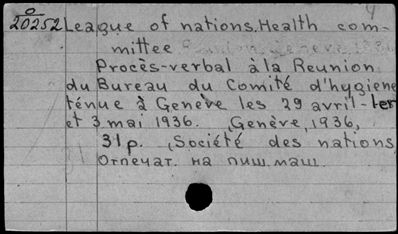 0
20252 League of nations. Health com-
mittee
Procès-verbal à la Reunion
du Bureau du Comité d'hygiene
ténue à Genève les 29 avril-1er
et 3 mai 1936. Genève, 1936,
31p. (Société des nations
Отпечат. на пиш. маш.